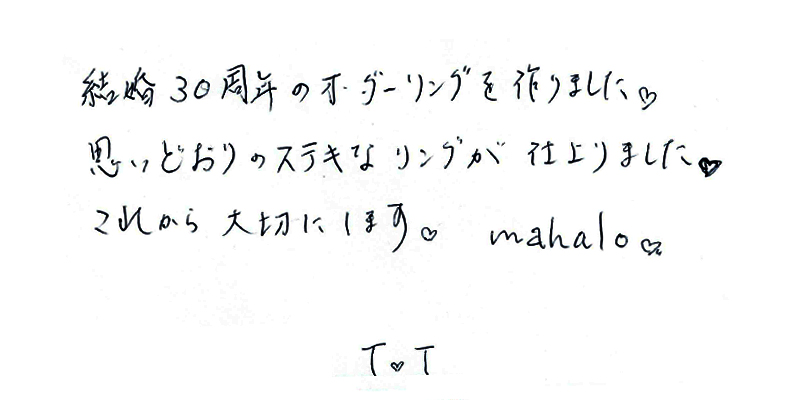 結婚30周年のオーダーリングを作りました♡
思いどおりのステキなリングが仕上りました♥
これから大切にします♡ mahalo♡
T♡T